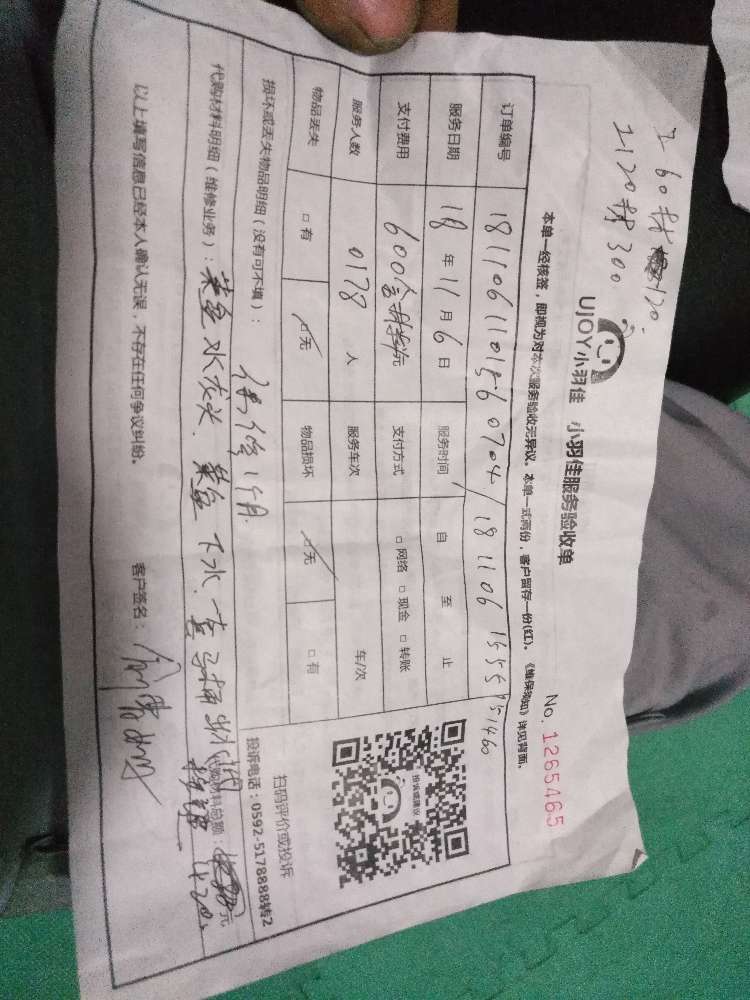 工60材
工120材300
UJOY小羽佳 小羽佳服务验收单
No. 1265465
本单一经核签，即视为对本次服务验收无异议。本单一式两份，客户留存一份(红)。《维保须知》详见背面。
订单编号 / 181106
服务日期 18年11月6日 服务时间 自 至 止
支付费用 600含材料元 支付方式 □网络 □现金 □转账
服务人数 0178 人 服务车次 车/次
物品丢失 □有 □无 物品损坏 □无 □有
损坏或丢失物品明细（没有可不填）： 保修1个月
代购材料明细（维修业务）：菜盆水龙头、菜盆下水、
代购材料总额： 元
以上填写信息已经本人确认无误，不存在任何争议纠纷。 客户签名：
投诉或建议
扫码评价或投诉
投诉电话：0592-5178888转2